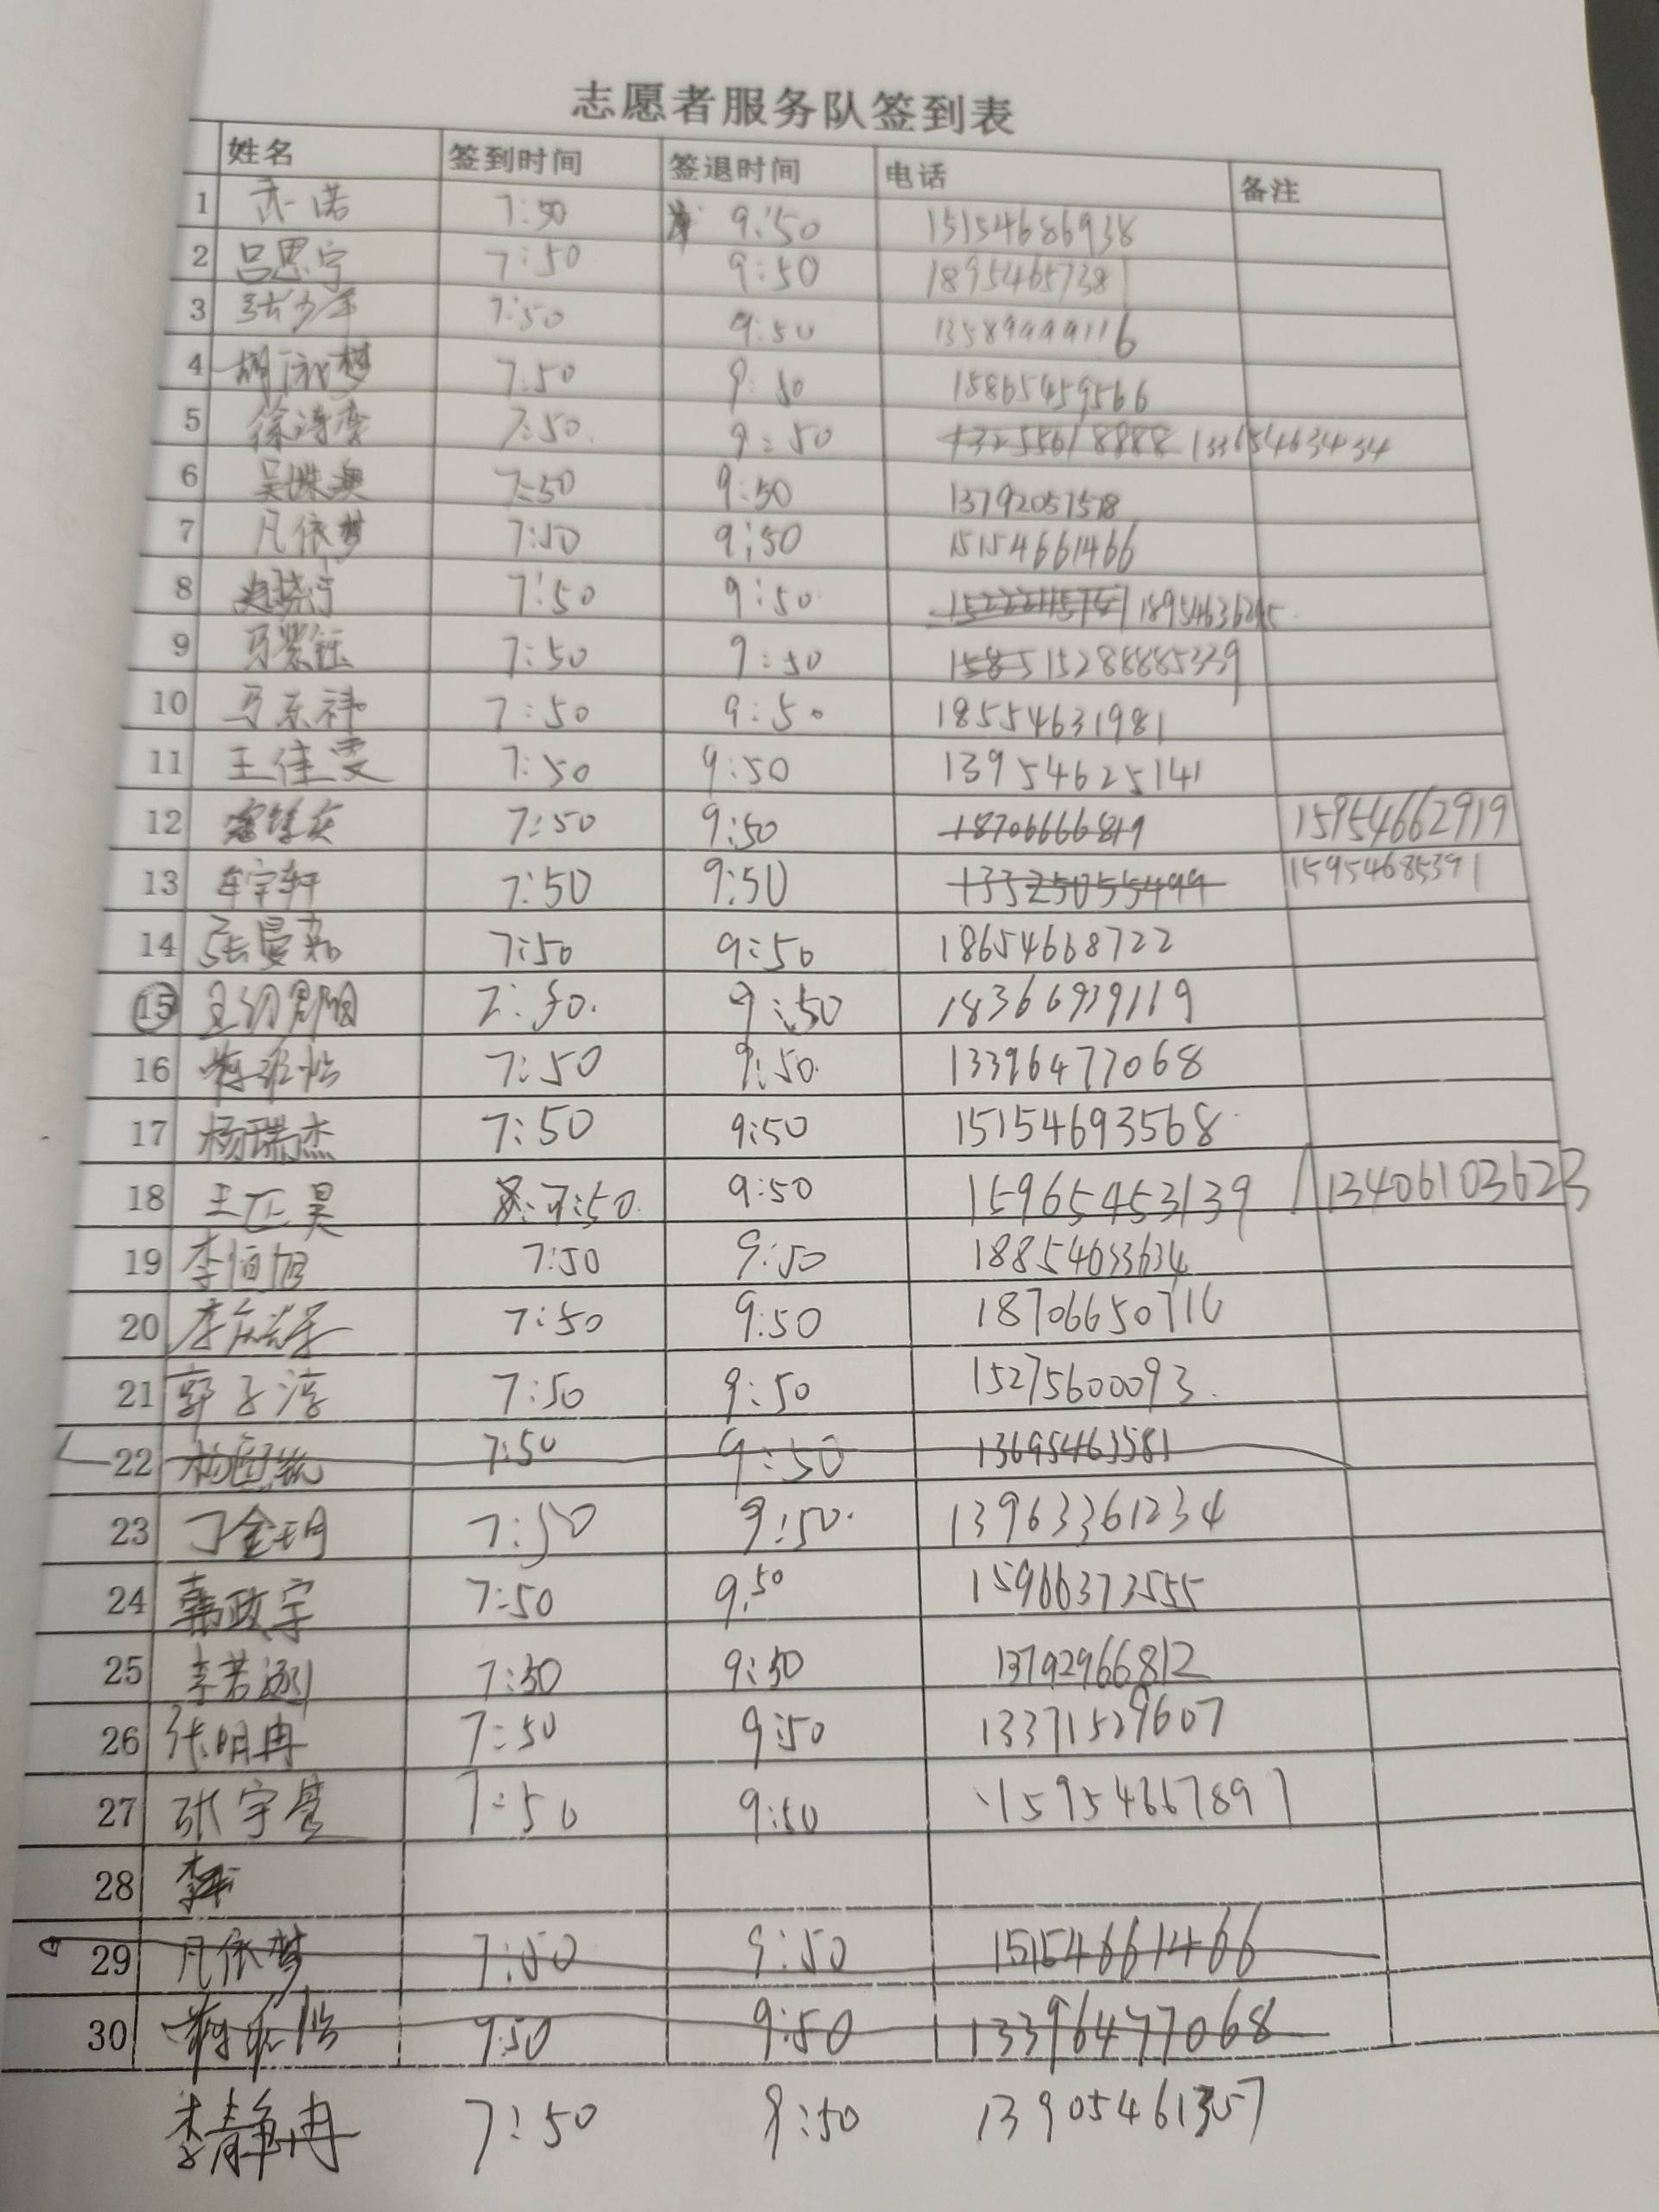 志愿者服务队签到表
姓名 签到时间 签退时间 电话 备注
1 亓诺 7:50 9:50 15154686938
2 吕思宁 7:50 9:50 18954657381
3 7:50 9:50 13589999116
4 7:50 9:50 15865459566
5 7:50 9:50 13255618888 13365463434
6 7:50 9:50 13792051518
7 凡依梦 7:50 9:50 15154661466
8 7:50 9:50 18954636295
9 马紫钰 7:50 9:50 1585 15288885339
10 马东祥 7:50 9:50 18554631981
11 王佳雯 7:50 9:50 13954625141
12 7:50 9:50 18706666819 15954662919
13 车宇轩 7:50 9:50 13325055499 15954685391
14 张曼 7:50 9:50 18654668722
15 7:50 9:50 18366939119
16 7:50 9:50 13396477068
17 杨瑞杰 7:50 9:50 15154693568
18 王正昊 7:50 9:50 15965453139 13406103623
19 李恒旭 7:50 9:50 18854633634
20 7:50 9:50 18706650716
21 郭子淳 7:50 9:50 15275600093
22 7:50 9:50 13695463581
23 丁金玥 7:50 9:50 13963361234
24 韩政宇 7:50 9:50 15966373555
25 李若 7:50 9:50 13792966812
26 张明冉 7:50 9:50 13371529607
27 张宇萱 7:50 9:50 15954667897
28 李
29 凡依梦 7:50 9:50 15154661466
30 7:50 9:50 13396477068
李静冉 7:50 9:50 13905461357